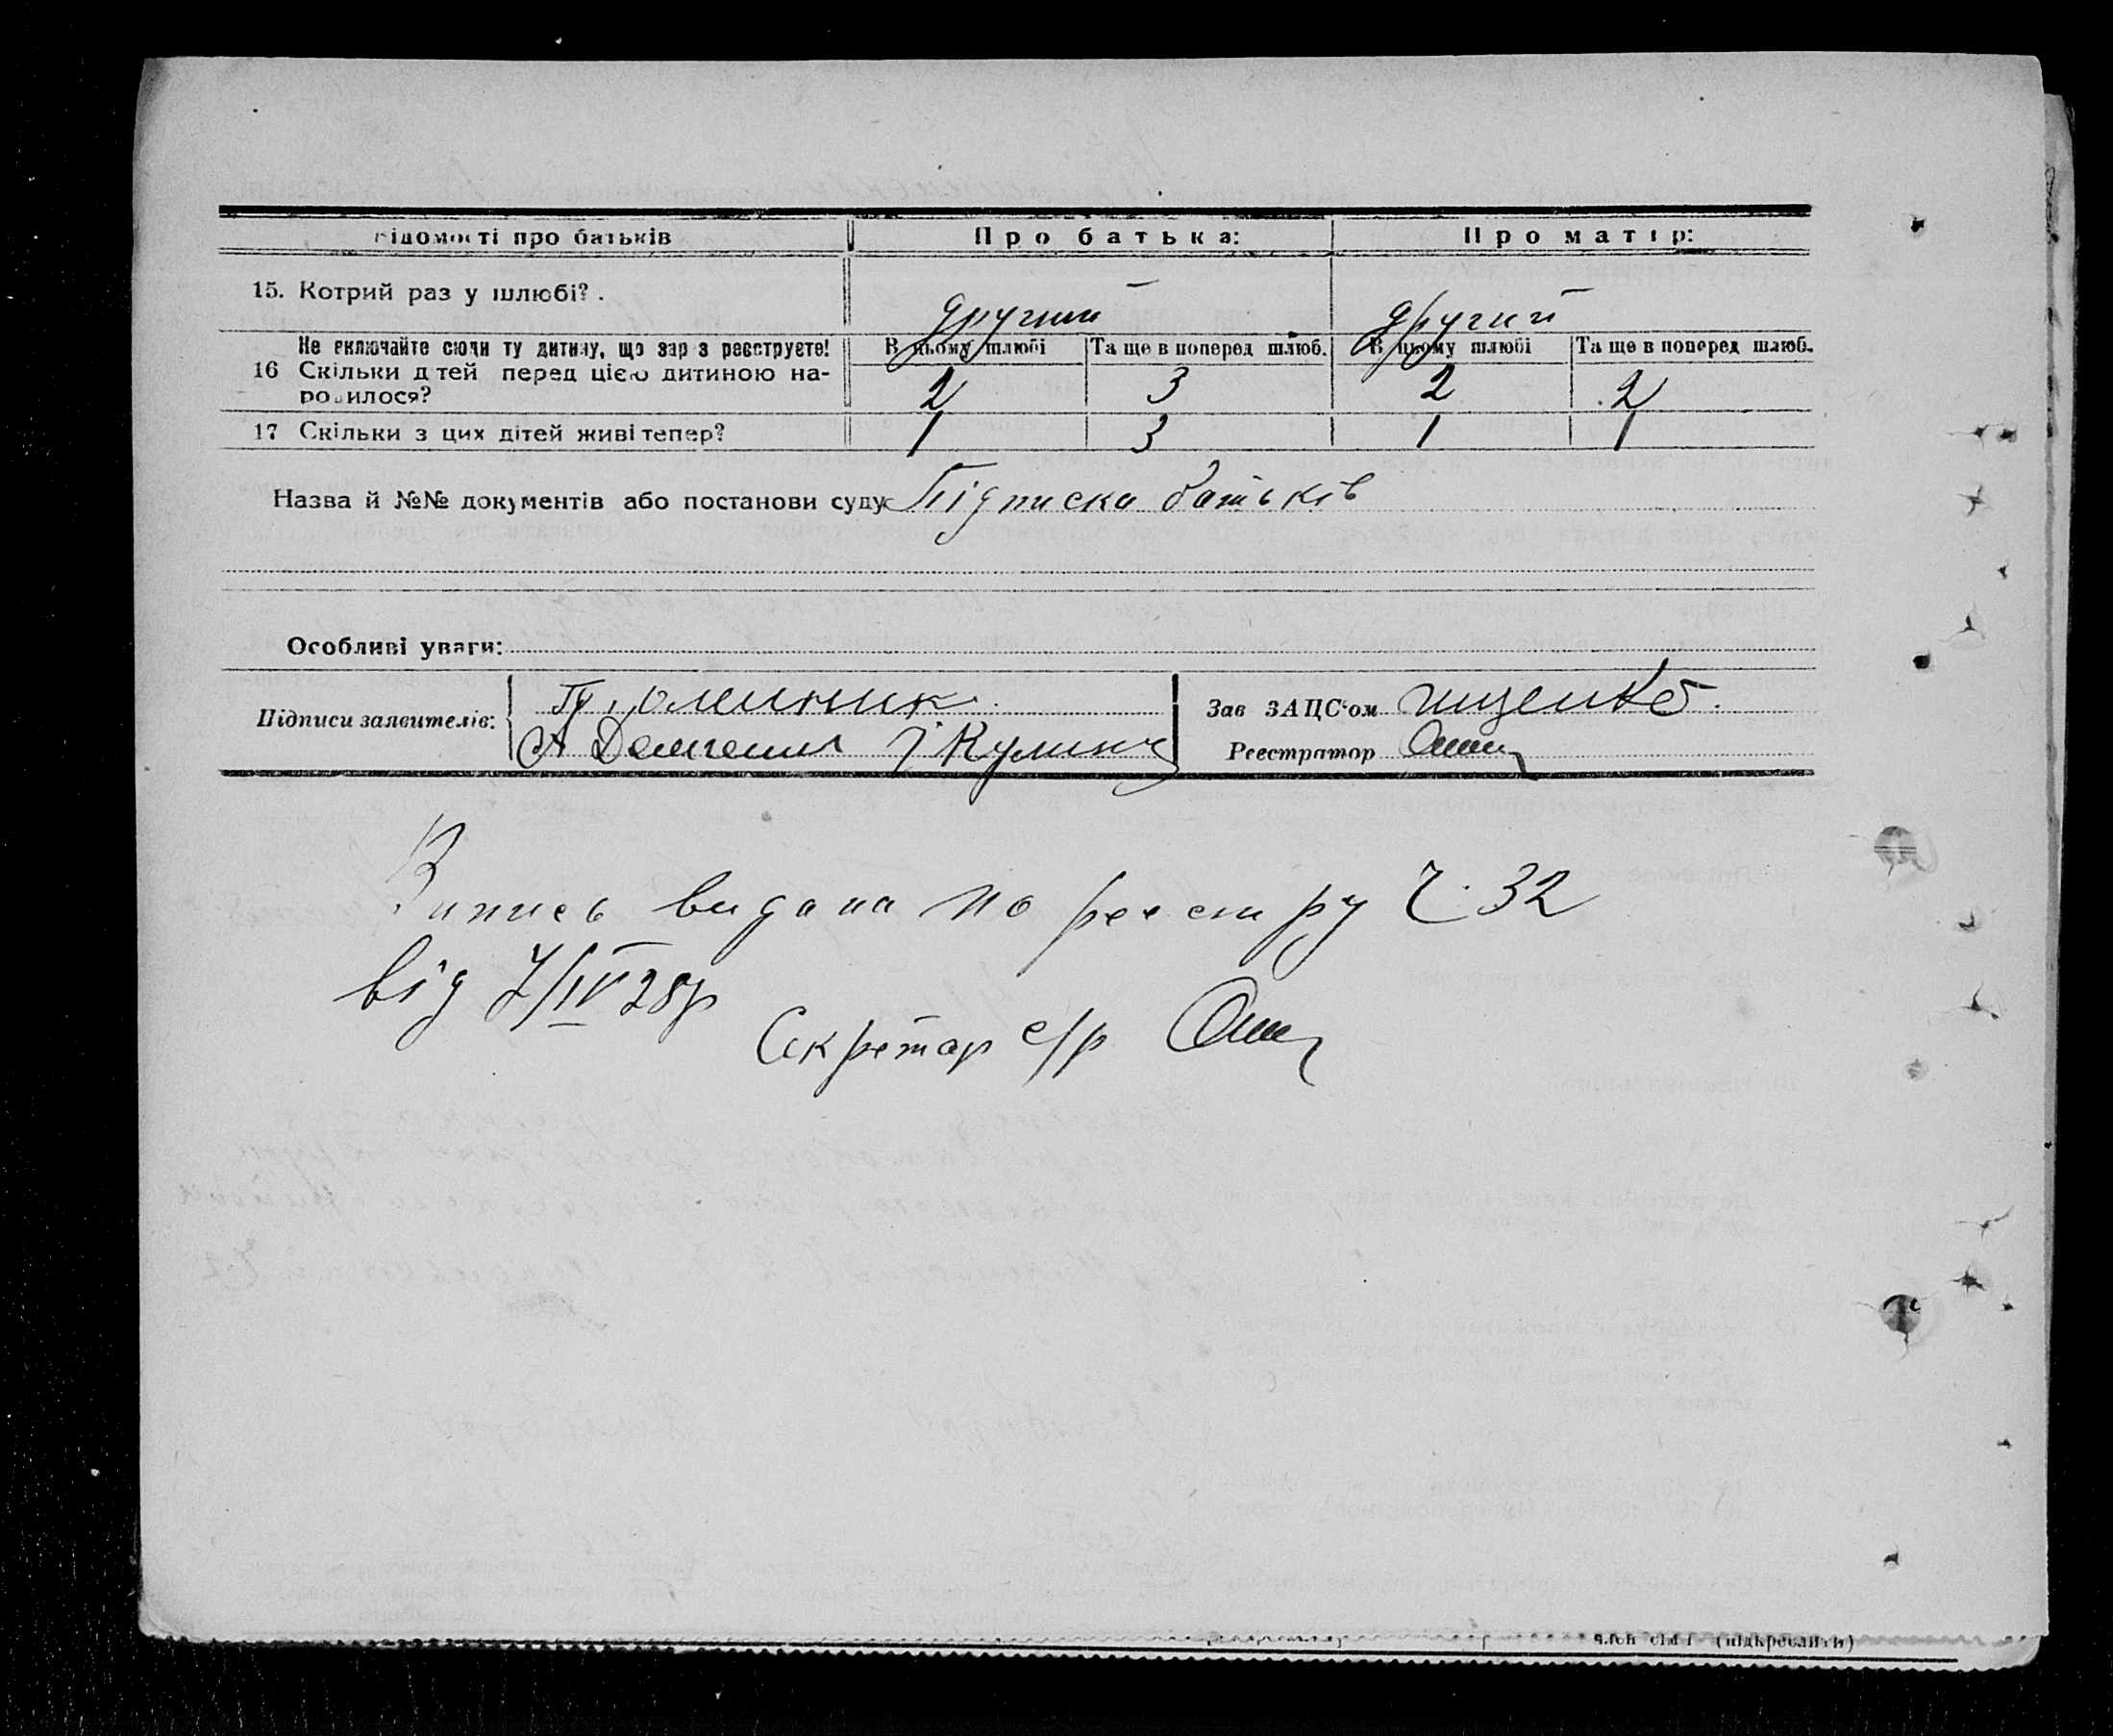 Відомості про батьків Про батька: Про матір:
15. Котрий раз у шлюбі? . другий другий
Не включайте сюди ту дитину, що зараз реєструєте! В цьому шлюбі Та ще в поперед шлюб. В цьому шлюбі Та ще в поперед шлюб.
16 Скільки дітей перед цією дитиною на- 2 3 2 2
родилося?
17 Скільки з цих дітей живі тепер? 1 3 1 1
Назва й №№ документів або постанови суду: Підписка батьків
Особливі уваги:
Підписи заявителів: Зав ЗАЦС'ом
А Реєстратор
Випись видана по реєстру Ч. 32
від 7/IV 28р
Секретар с/р
член сім'ї (підкреслити)